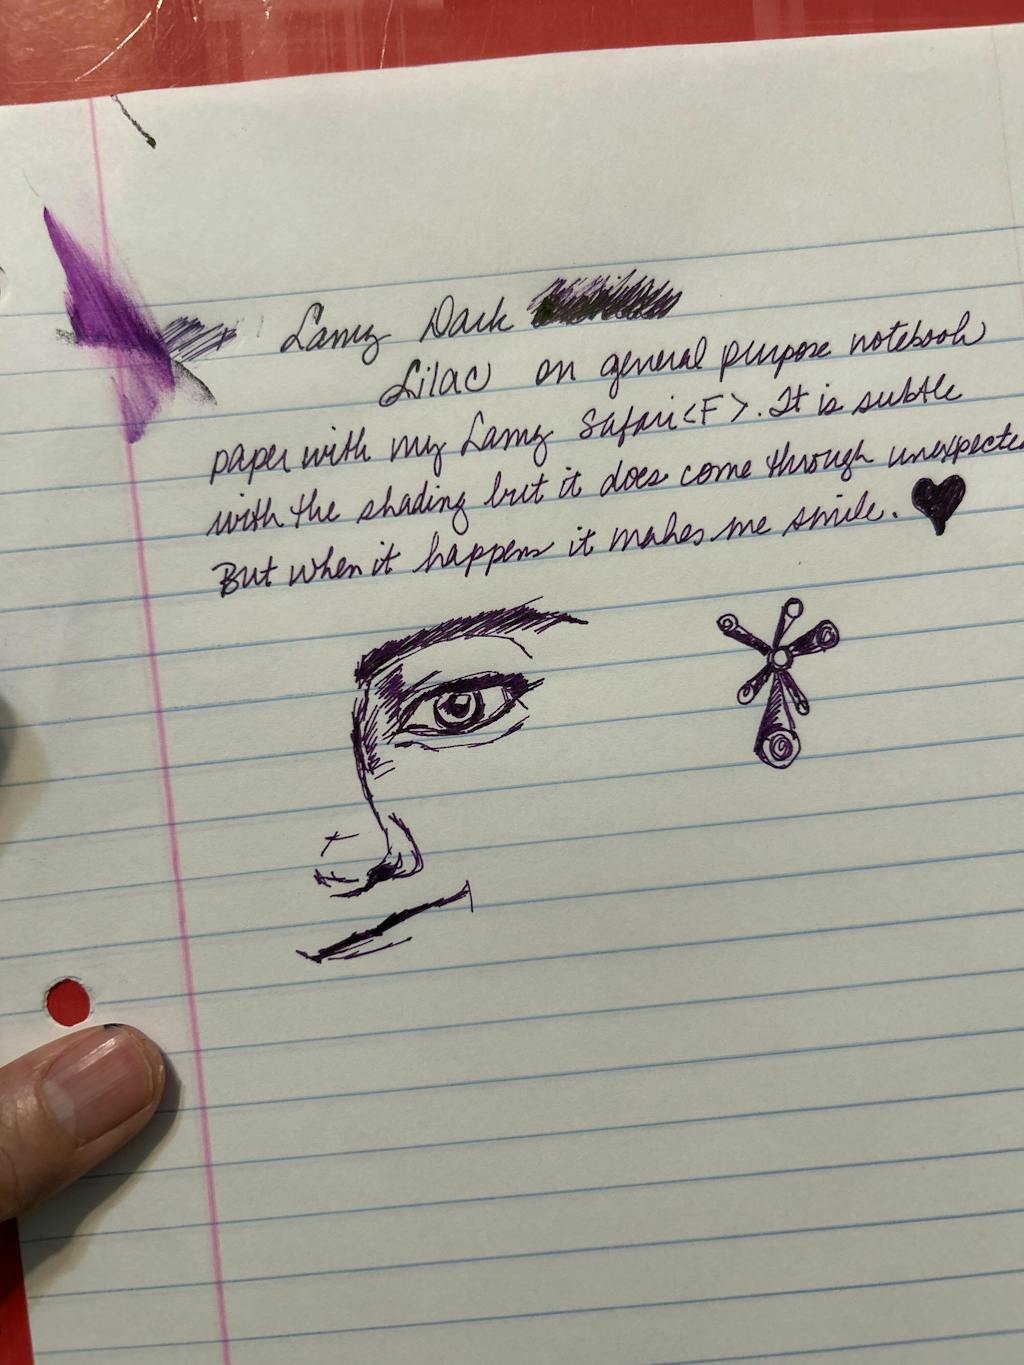 Lamy Dark
Lilac on general purpose notebook
paper with my Lamy Safari <F>. It is subtle
with the shading but it does come through unexpected
But when it happens it makes me smile.